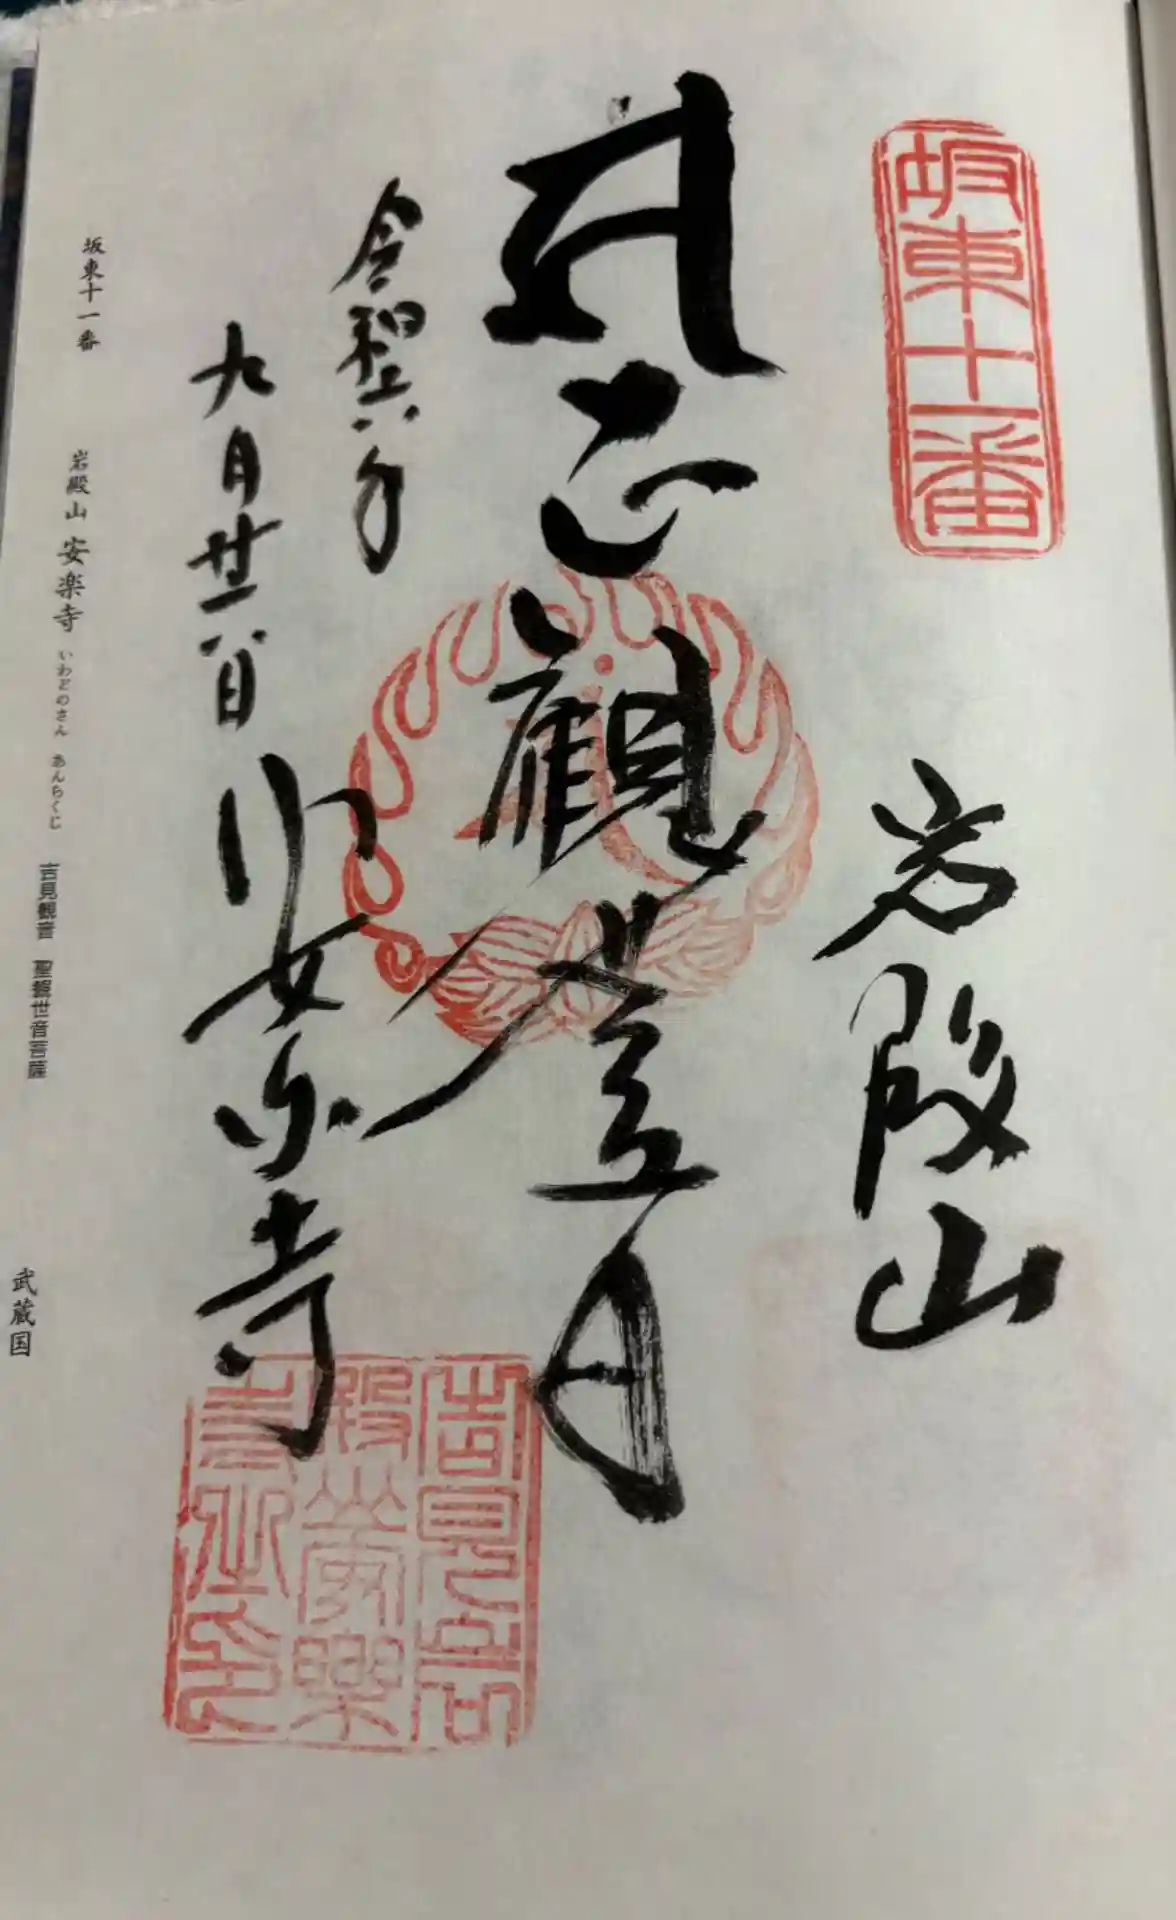 坂東十一番
岩殿山
正觀世音
令和六年
九月廿八日
安楽寺
坂東十一番 岩殿山 安楽寺 いわどのさん あんらくじ 吉見観音 聖観世音菩薩 武蔵国